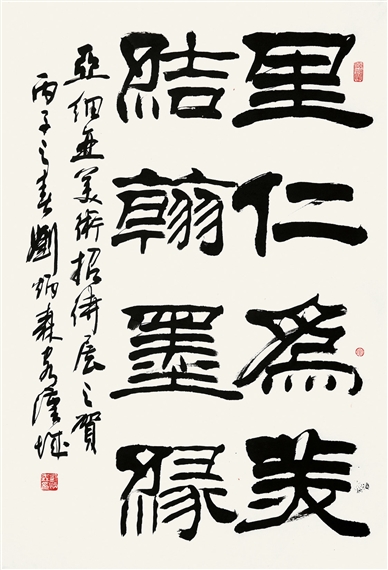 里仁為美
結翰墨緣
亞細亞美術招待展之賀
丙子之春劉炳森客漢城